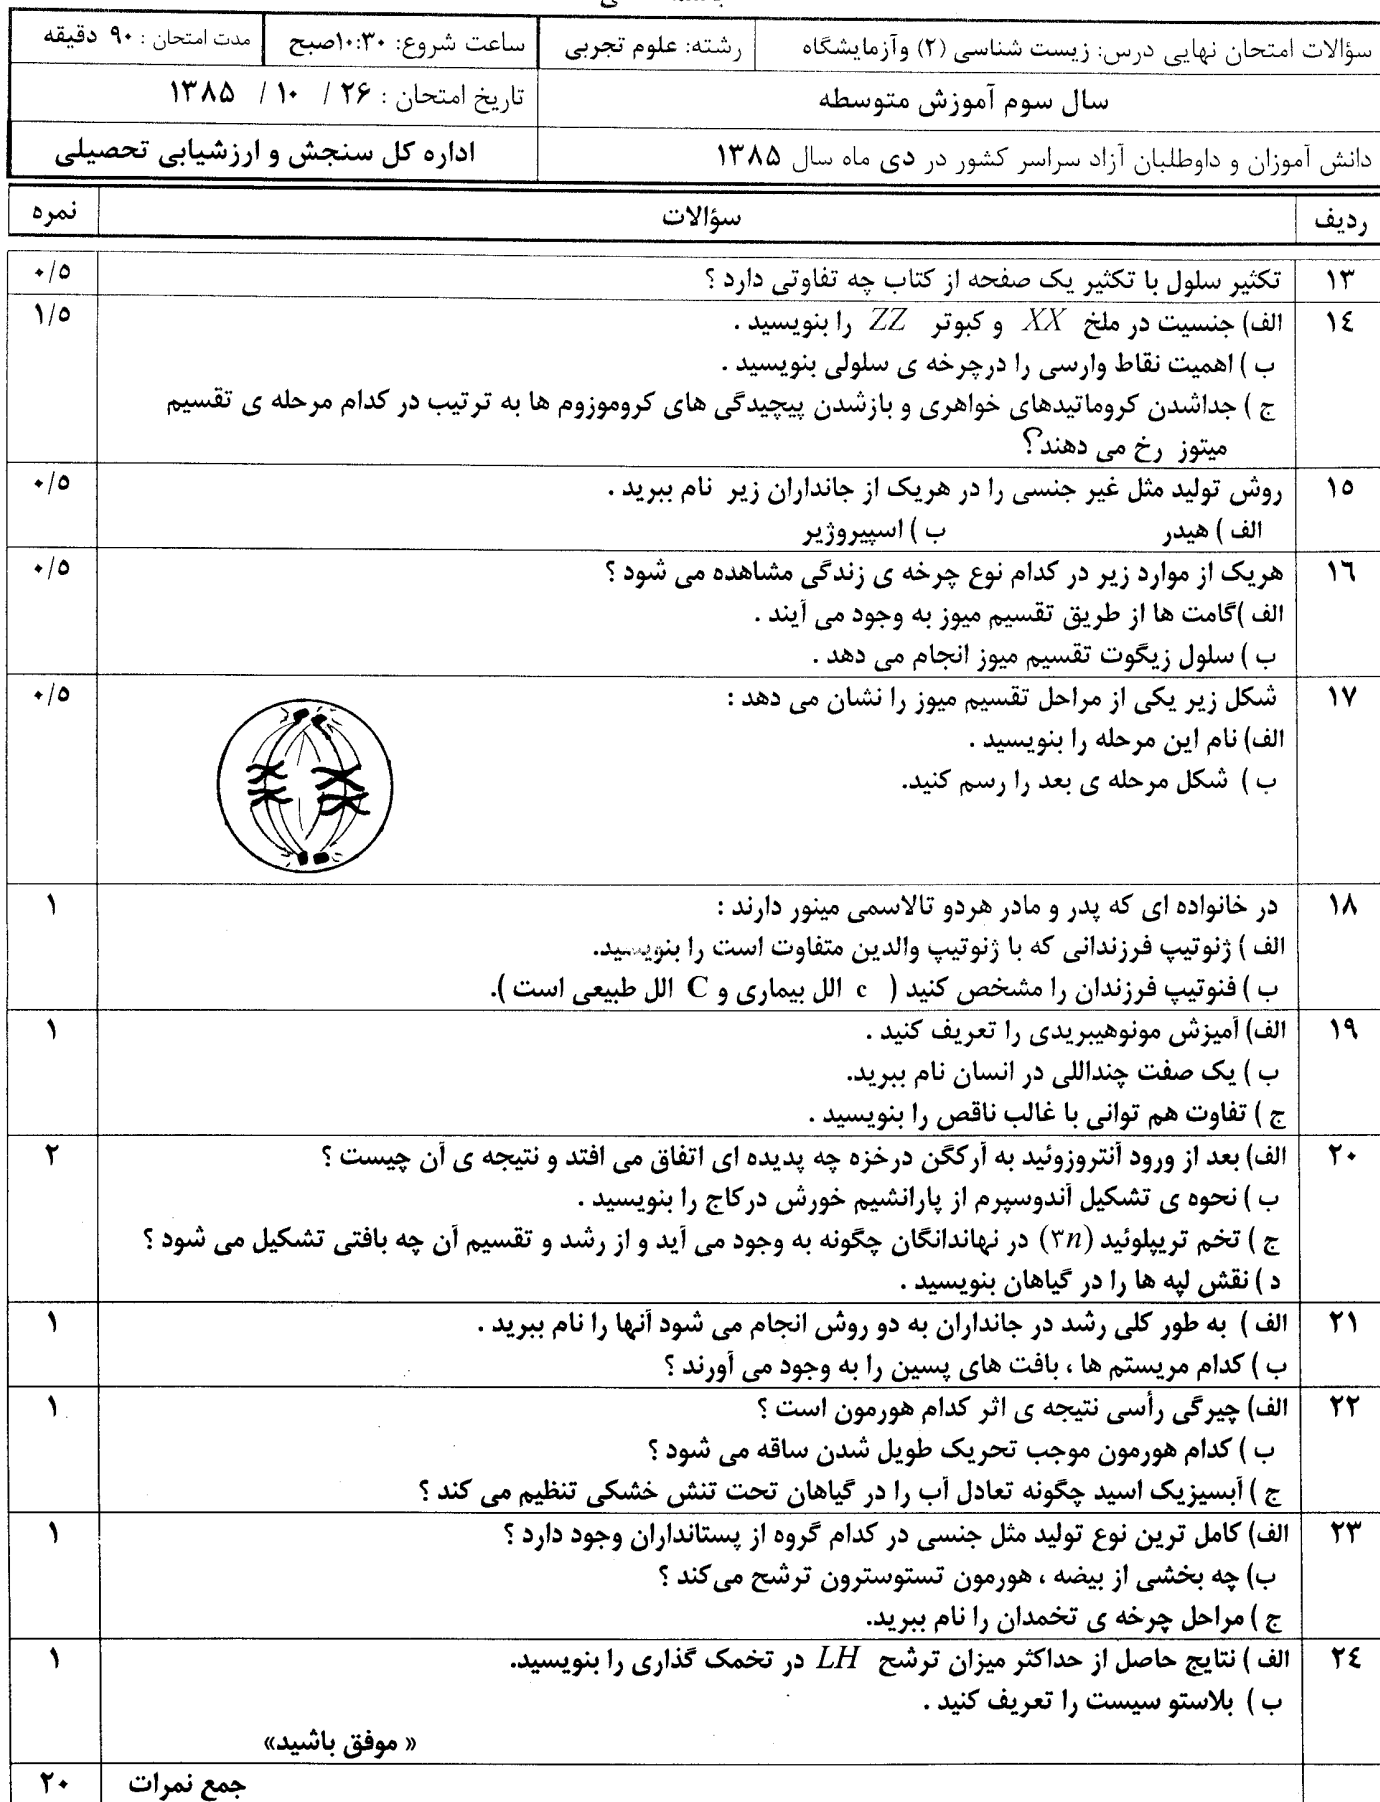 سؤالات امتحان نهایی درس: زیست شناسی (۲) وآزمایشگاه رشته: علوم تجربی ساعت شروع: ۱۰:۳۰صبح مدت امتحان : ۹۰ دقیقه
سال سوم آموزش متوسطه تاریخ امتحان : ۲۶ / ۱۰ / ۱۳۸۵
دانش آموزان و داوطلبان آزاد سراسر کشور در دی ماه سال ۱۳۸۵ اداره کل سنجش و ارزشیابی تحصیلی
ردیف سؤالات نمره
۱۳ تکثیر سلول با تکثیر یک صفحه از کتاب چه تفاوتی دارد ؟ ۰/۵
۱۴ الف) جنسیت در ملخ XX و کبوتر ZZ را بنویسید . ۱/۵
ب ) اهمیت نقاط وارسی را درچرخه ی سلولی بنویسید .
ج ) جداشدن کروماتیدهای خواهری و بازشدن پیچیدگی های کروموزوم ها به ترتیب در کدام مرحله ی تقسیم
میتوز رخ می دهند؟
۱۵ روش تولید مثل غیر جنسی را در هریک از جانداران زیر نام ببرید . ۰/۵
الف ) هیدر ب ) اسپیروژیر
۱۶ هریک از موارد زیر در کدام نوع چرخه ی زندگی مشاهده می شود ؟ ۰/۵
الف )گامت ها از طریق تقسیم میوز به وجود می آیند .
ب ) سلول زیگوت تقسیم میوز انجام می دهد .
۱۷ شکل زیر یکی از مراحل تقسیم میوز را نشان می دهد : ۰/۵
الف) نام این مرحله را بنویسید .
ب ) شکل مرحله ی بعد را رسم کنید.
۱۸ در خانواده ای که پدر و مادر هردو تالاسمی مینور دارند : ۱
الف ) ژنوتیپ فرزندانی که با ژنوتیپ والدین متفاوت است را بنویسید.
ب ) فنوتیپ فرزندان را مشخص کنید ( c الل بیماری و C الل طبیعی است ).
۱۹ الف) آمیزش مونوهیبریدی را تعریف کنید . ۱
ب ) یک صفت چنداللی در انسان نام ببرید.
ج ) تفاوت هم توانی با غالب ناقص را بنویسید .
۲۰ الف) بعد از ورود آنتروزوئید به آرکگن درخزه چه پدیده ای اتفاق می افتد و نتیجه ی آن چیست ؟ ۲
ب ) نحوه ی تشکیل آندوسپرم از پارانشیم خورش درکاج را بنویسید .
ج ) تخم تریپلوئید (۳n) در نهاندانگان چگونه به وجود می آید و از رشد و تقسیم آن چه بافتی تشکیل می شود ؟
د ) نقش لپه ها را در گیاهان بنویسید .
۲۱ الف ) به طور کلی رشد در جانداران به دو روش انجام می شود آنها را نام ببرید . ۱
ب ) کدام مریستم ها ، بافت های پسین را به وجود می آورند ؟
۲۲ الف) چیرگی رأسی نتیجه ی اثر کدام هورمون است ؟ ۱
ب ) کدام هورمون موجب تحریک طویل شدن ساقه می شود ؟
ج ) آبسیزیک اسید چگونه تعادل آب را در گیاهان تحت تنش خشکی تنظیم می کند ؟
۲۳ الف) کامل ترین نوع تولید مثل جنسی در کدام گروه از پستانداران وجود دارد ؟ ۱
ب) چه بخشی از بیضه ، هورمون تستوسترون ترشح می‌کند ؟
ج ) مراحل چرخه ی تخمدان را نام ببرید.
۲۴ الف ) نتایج حاصل از حداکثر میزان ترشح LH در تخمک گذاری را بنویسید. ۱
ب ) بلاستو سیست را تعریف کنید .
« موفق باشید»
جمع نمرات ۲۰